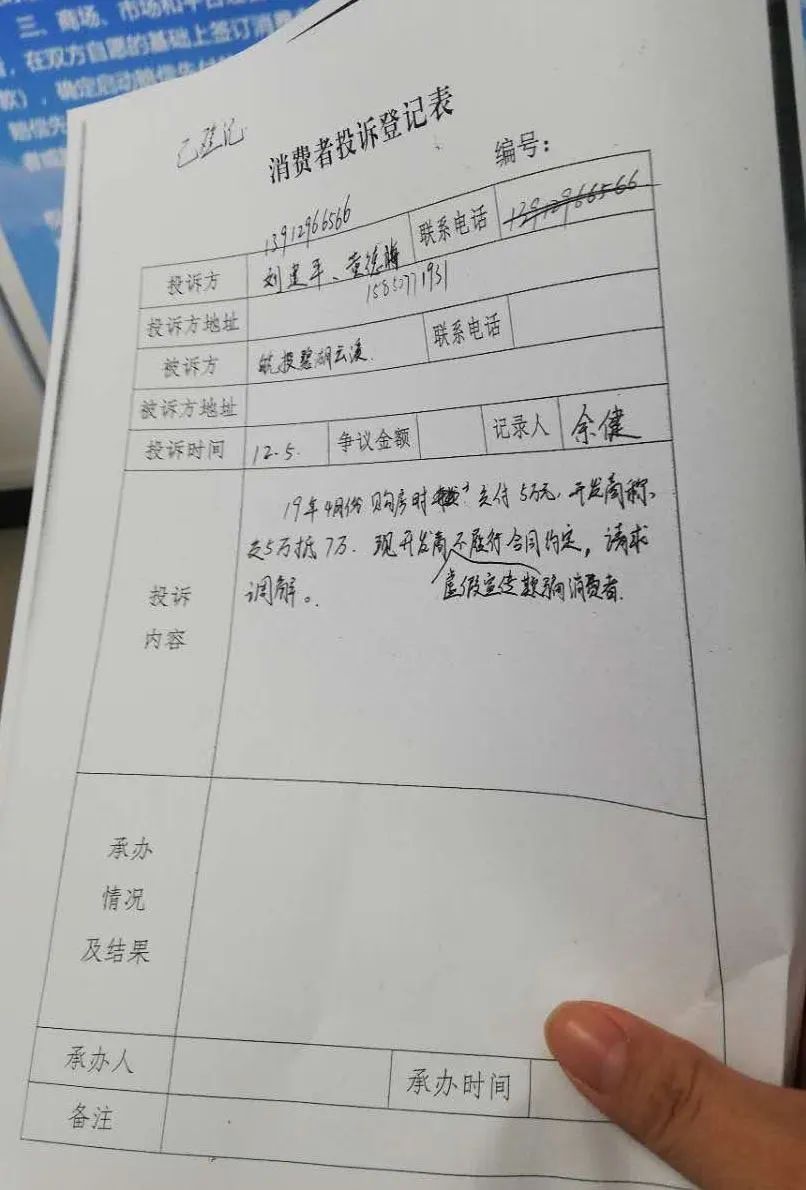 三、商场、市场和平台
，在双方自愿的基础上签订消费
款），确定启动赔偿先付
赔偿先
已登记
消费者投诉登记表
编号：
13912966566
投诉方
刘建平、黄德腾
联系电话
13912966566
15850771931
投诉方地址
被诉方
筑投碧湖云溪.
联系电话
被诉方地址
投诉时间
12.5.
争议金额
记录人
余健
19年4月份购房时 支付5万元，开发商称.
交5万抵7万.现开发商不履行合同约定，请求
调解。
虚假宣传欺骗消费者.
投诉
内容
承办
情况
及结果
承办人
承办时间
备注